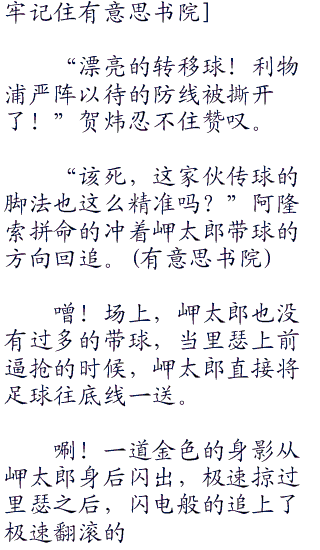 牢记住有意思书院]
“漂亮的转移球！利物
浦严阵以待的防线被撕开
了！”贺炜忍不住赞叹。
“该死，这家伙传球的
脚法也这么精准吗？”阿隆
索拼命的冲着岬太郎带球的
方向回追。(有意思书院)
噌！场上，岬太郎也没
有过多的带球，当里瑟上前
逼抢的时候，岬太郎直接将
足球往底线一送。
唰！一道金色的身影从
岬太郎身后闪出，极速掠过
里瑟之后，闪电般的追上了
极速翻滚的